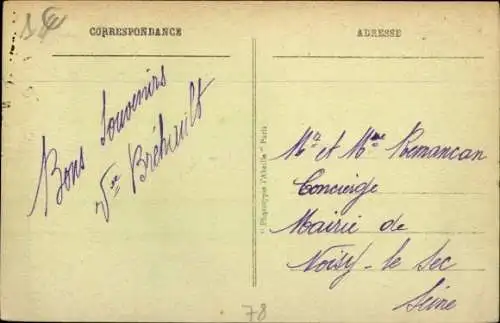 CORRESPONDANCE
ADRESSE
Bons Souvenirs
Vve Bréhuilt
Phototypie l'Abeille - Paris
Mr et Mme Remancan
Concierge
Mairie de
Noisy-le Sec
Seine
78